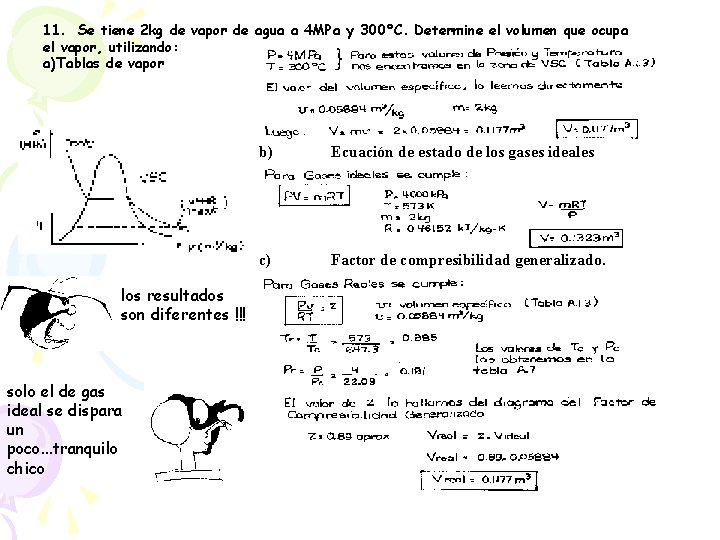 11. Se tiene 2kg de vapor de agua a 4MPa y 300ºC. Determine el volumen que ocupa
el vapor, utilizando:
a)Tablas de vapor
P=4MPa } Para estos valores de Presión y Temperatura
T=300°C nos encontramos en la zona de VSC (Tabla A.1.3)
El valor del volumen específico, lo leemos directamente
v=0.05884 m³/kg m=2kg
Luego: V=mv = 2x0.05884 = 0.1177m³ V=0.1177m³
VSC
b) Ecuación de estado de los gases ideales
Para Gases ideales se cumple:
PV=mRT
P=4000kPa
T=573K
m=2kg
R=0.46152 KJ/kg-K
V=mRT/P
V=0.1323m³
c) Factor de compresibilidad generalizado.
Para Gases Reales se cumple:
Pv/RT = Z
v: volumen específico (Tabla A.1.3)
v=0.05884 m³/kg
Tr= T/Tc = 573/647.3 = 0.885
Pr= P/Pc = 4/22.09 = 0.181
Los valores de Tc y Pc
los obtenemos en la
tabla A.7
El valor de Z lo hallamos del diagrama del Factor de
Compresibilidad Generalizado
Z=0.89 aprox
Vreal = Z.Videal
Vreal = 0.89.0.05884
Vreal = 0.1177m³
los resultados
son diferentes !!!
solo el de gas
ideal se dispara
un
poco...tranquilo
chico